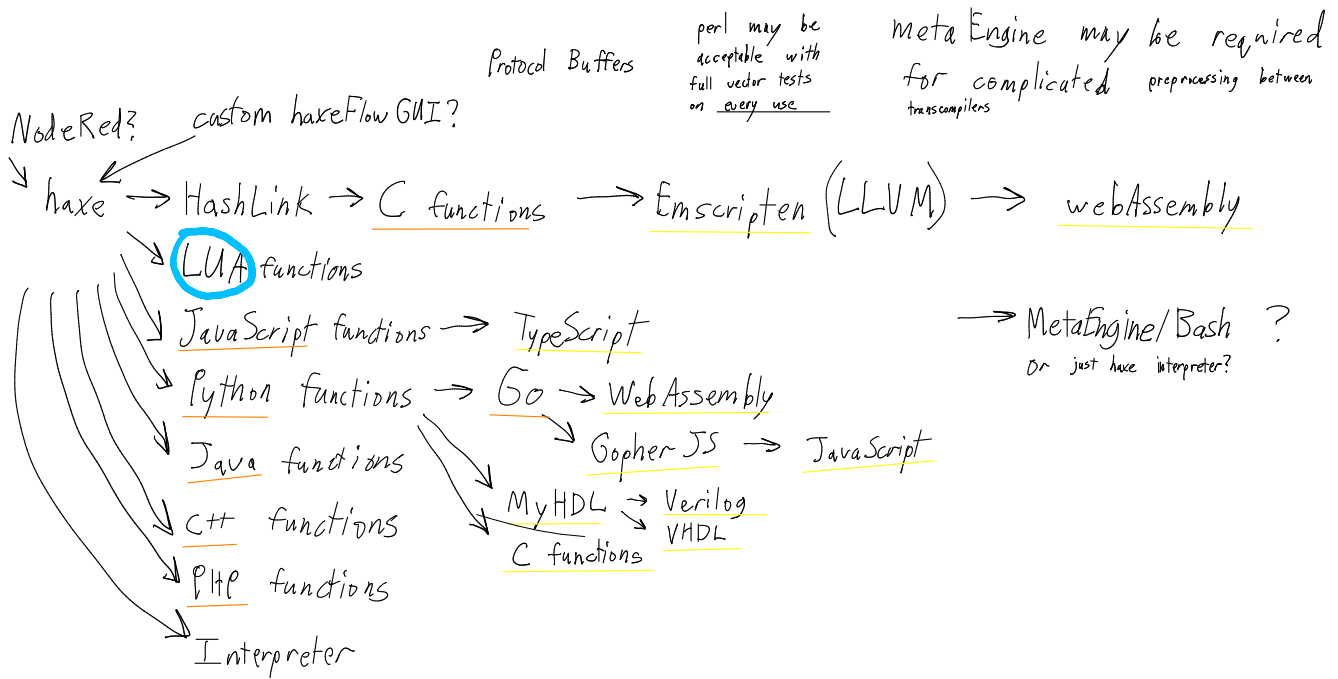 perl may be
acceptable with
full vector tests
on every use
meta Engine may be required
for complicated preprocessing between
transcompilers
Protocol Buffers
NodeRed?
custom haxeFlow GUI?
haxe
HashLink
C functions
Emscripten (LLVM)
webAssembly
LUA functions
JavaScript functions
TypeScript
MetaEngine/Bash ?
or just haxe interpreter?
Python functions
Go
WebAssembly
Java functions
Gopher JS
JavaScript
MyHDL
Verilog
VHDL
C++ functions
C functions
PHP functions
Interpreter